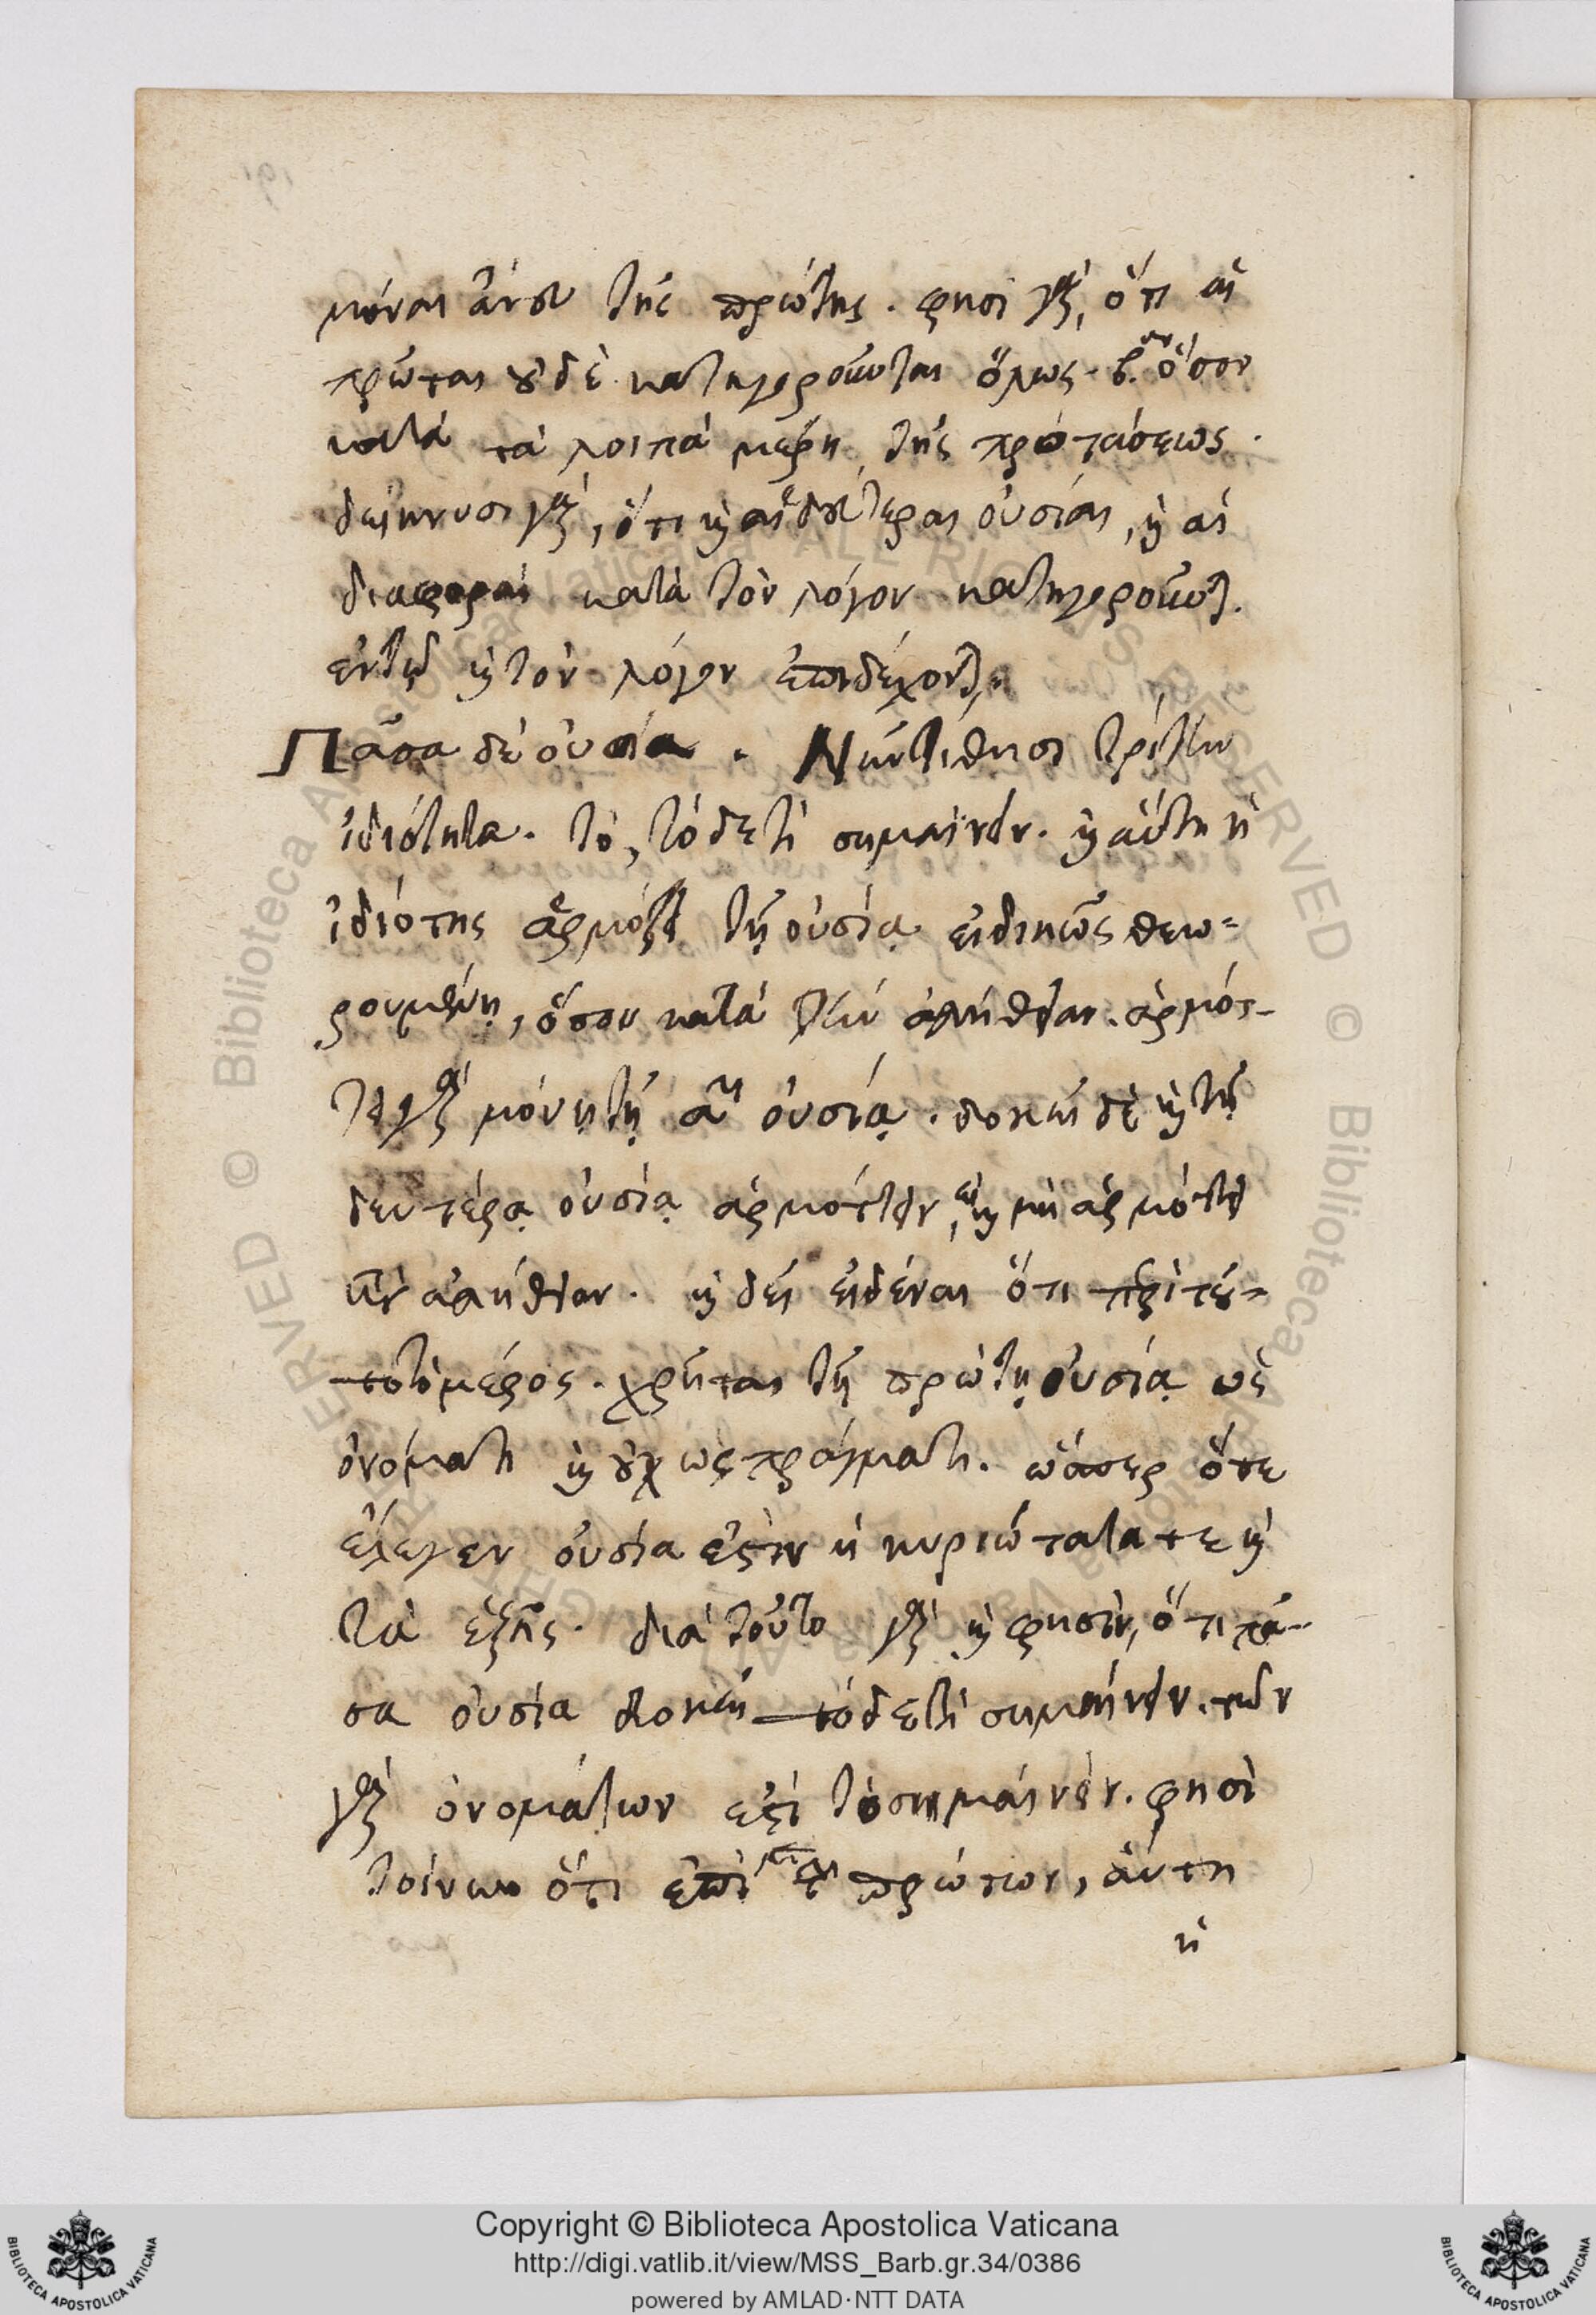 μόναι ἄνευ τῆς πρώτης. φησὶ γὰρ, ὅτι αἱ
πρῶται οὐδὲ κατηγοροῦνται ὅλως. β.ον ὅσον
κατὰ τὰ λοιπὰ μέρη τῆς προτάσεως.
δείκνυσι γὰρ, ὅτι καὶ αἱ δεύτεραι οὐσίαι, καὶ αἱ
διαφοραὶ κατὰ τὸν λόγον κατηγοροῦνται.
καὶ τὸν λόγον ἐπιδέχονται.
Πᾶσα δὲ οὐσία. τρίτην
ἰδιότητα. τὸ, τόδε τὶ σημαίνειν. καὶ αὕτη ἡ
ἰδιότης ἁρμόζει τῇ οὐσίᾳ εἰδικῶς θεω-
ρουμένῃ, ὅσον κατὰ τὴν ἀλήθειαν. ἁρμότ-
τει γὰρ μόνῃ τῇ αῃ οὐσίᾳ. δοκεῖ δὲ καὶ τῇ
δευτέρᾳ οὐσίᾳ ἁρμόττειν, εἰ καὶ μὴ ἁρμόττει
κατ' ἀλήθειαν. καὶ δεῖ εἰδέναι ὅτι περὶ τού-
του τὸ μέρος. χρῆται τῇ πρώτῃ οὐσίᾳ ὡς
ὀνόματι καὶ οὐχ ὡς πράγματι. ὥσπερ ὅτε
ἔλεγεν οὐσία ἐστὶν ἡ κυριώτατά τε καὶ
τὰ ἑξῆς. διὰ τοῦτο γὰρ καὶ φησὶν, ὅτι πᾶ-
σα οὐσία δοκεῖ τόδε τὶ σημαίνειν. τῶν
γὰρ ὀνομάτων ἐστὶ τὸ σημαίνειν. φησὶ
τοίνυν ὅτι ἐπὶ μὲν τῶν πρώτων, αὕτη
ἡ
Copyright © Biblioteca Apostolica Vaticana
http://digi.vatlib.it/view/MSS_Barb.gr.34/0386
powered by AMLAD·NTT DATA